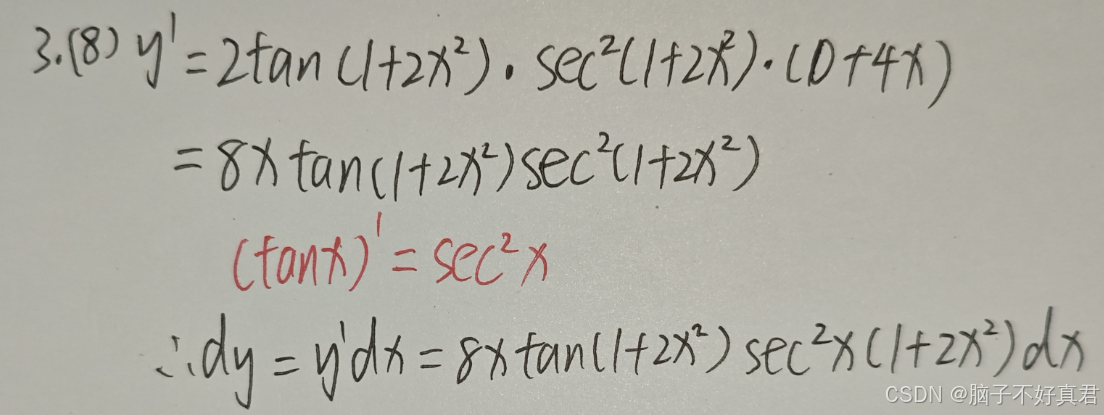 3.(8) y' = 2tan(1+2x²)·sec²(1+2x²)·(0+4x)
= 8xtan(1+2x²)sec²(1+2x²)
(tanx)' = sec²x
∴dy = y'dx = 8xtan(1+2x²)sec²x(1+2x²)dx
CSDN @脑子不好真君